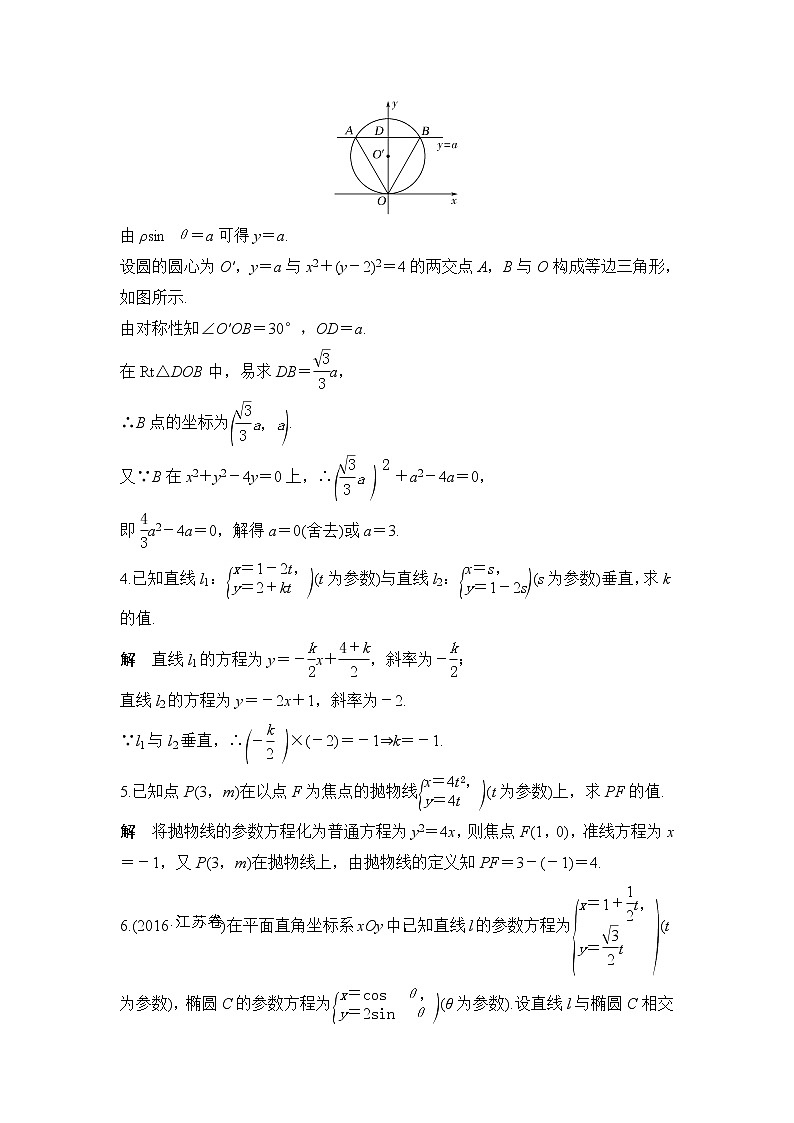 y
A D B
y=a
O′
O x
由 ρsin θ=a 可得 y=a.
设圆的圆心为 O′，y=a 与 x2+(y-2)2=4 的两交点 A，B 与 O 构成等边三角形，
如图所示.
由对称性知∠O′OB=30°，OD=a.
在 Rt△DOB 中，易求 DB=√3/3 a，
∴B 点的坐标为(√3/3 a，a).
又∵B 在 x2+y2-4y=0 上，∴(√3/3 a)2+a2-4a=0，
即4/3 a2-4a=0，解得 a=0(舍去)或 a=3.
4.已知直线 l1：{x=1-2t，y=2+kt (t 为参数)与直线 l2：{x=s，y=1-2s (s 为参数)垂直，求 k
的值.
解 直线 l1 的方程为 y=-k/2 x+(4+k)/2，斜率为-k/2；
直线 l2 的方程为 y=-2x+1，斜率为-2.
∵l1 与 l2 垂直，∴(-k/2)×(-2)=-1⇒k=-1.
5.已知点 P(3，m)在以点 F 为焦点的抛物线{x=4t2，y=4t (t 为参数)上，求 PF 的值.
解 将抛物线的参数方程化为普通方程为 y2=4x，则焦点 F(1，0)，准线方程为 x
=-1，又 P(3，m)在抛物线上，由抛物线的定义知 PF=3-(-1)=4.
6.(2016·江苏卷)在平面直角坐标系 xOy 中已知直线 l 的参数方程为{x=1+1/2 t，y=√3/2 t (t
为参数)，椭圆 C 的参数方程为{x=cos θ，y=2sin θ (θ 为参数).设直线 l 与椭圆 C 相交